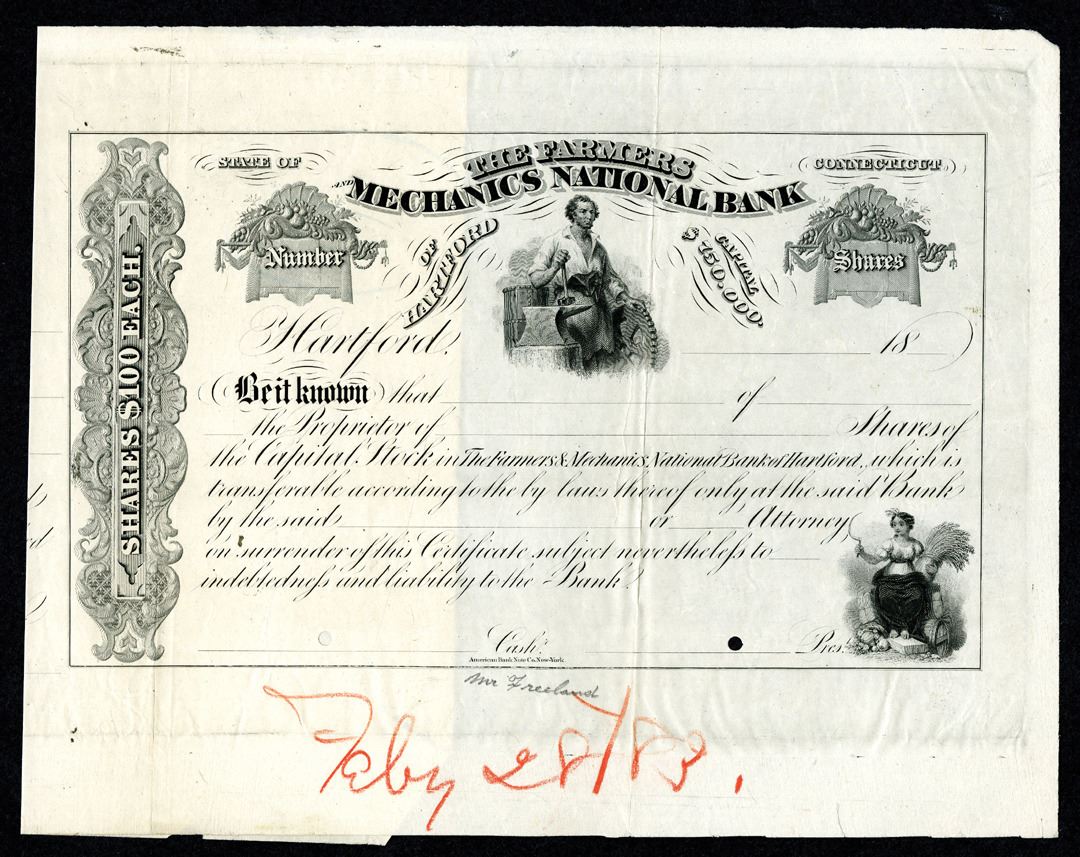 STATE OF
THE FARMERS
CONNECTICUT
AND MECHANICS NATIONAL BANK
OF HARTFORD
CAPITAL $750,000
Number
Shares
SHARES $100 EACH.
Hartford, 18
Be it known that of
the Proprietor of Shares of
the Capital Stock in The Farmers & Mechanics National Bank of Hartford, which is
transferable according to the by laws thereof only at the said Bank
by the said or Attorney
on surrender of this Certificate subject nevertheless to
indebtedness and liability to the Bank.
Cash. Pres.
American Bank Note Co. New-York.
Mr Freeland
Feby 28/83.